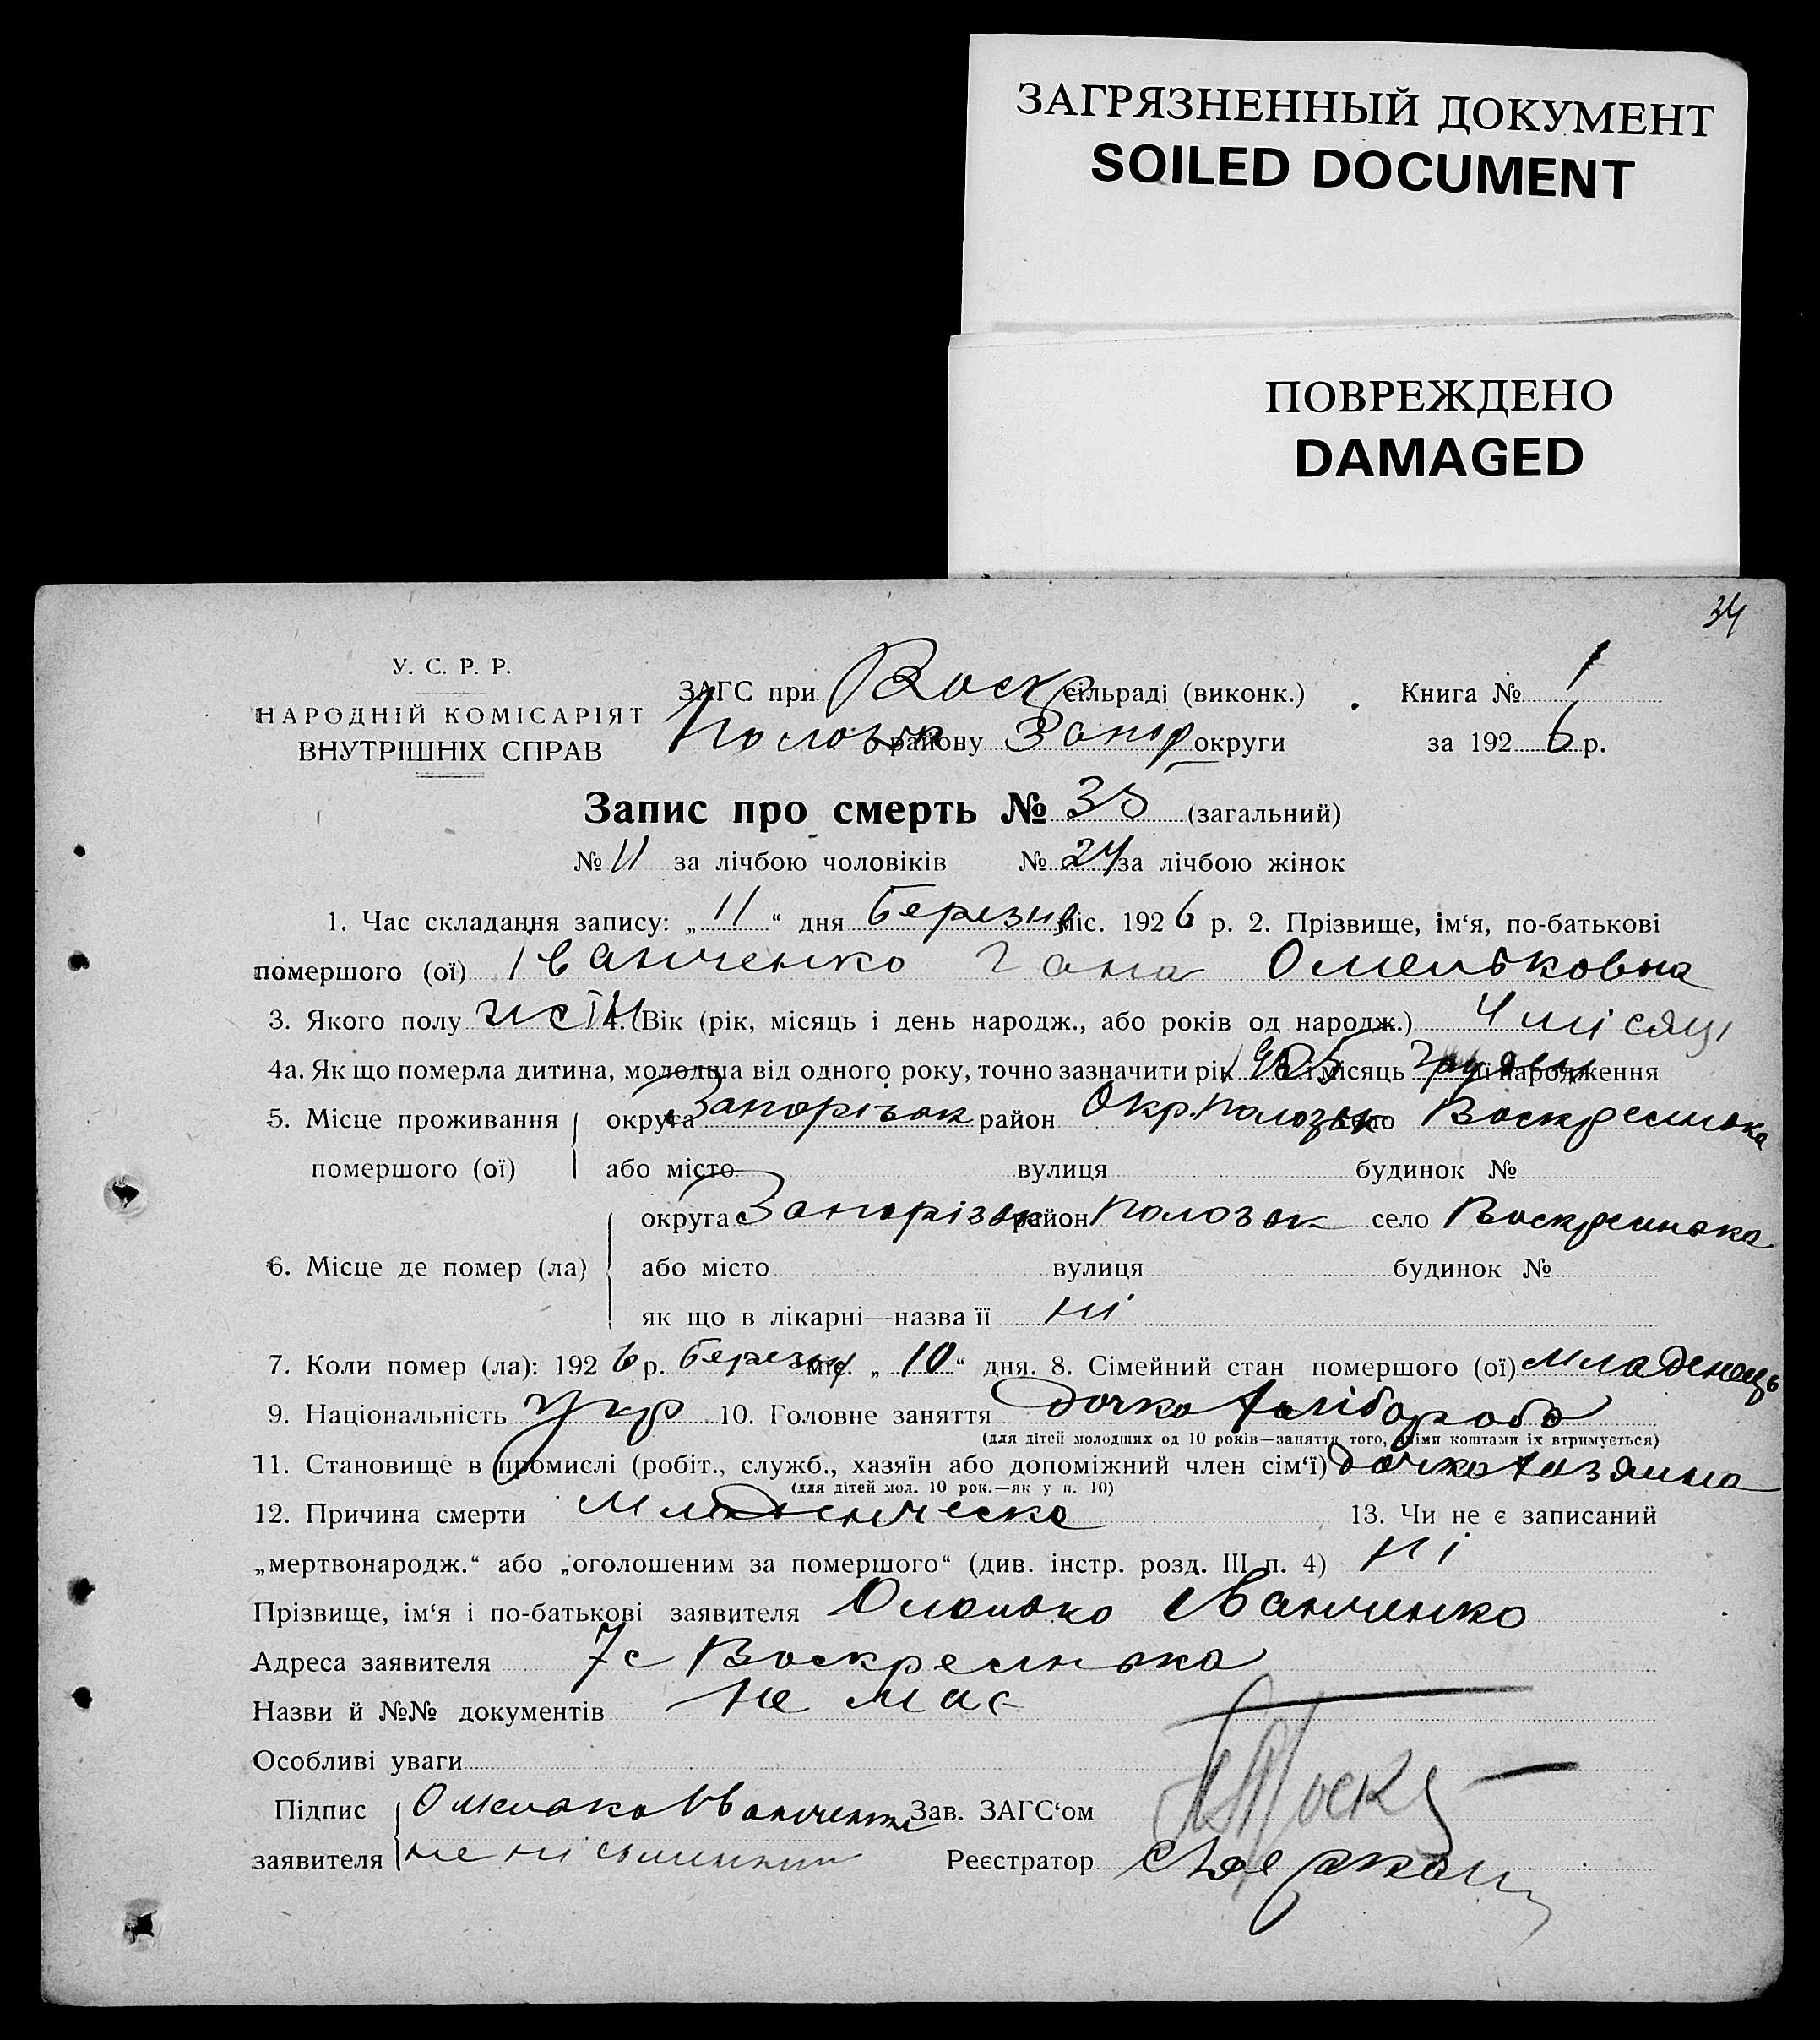 ЗАГРЯЗНЕННЫЙ ДОКУМЕНТ
SOILED DOCUMENT
ПОВРЕЖДЕНО
DAMAGED
34
У. С. Р. Р.
НАРОДНІЙ КОМІСАРІЯТ
ВНУТРІШНІХ СПРАВ
ЗАГС при Воскр сільраді (виконк.) Книга № 1
Полозьк району Запор округи за 1926 р.
Запис про смерть № 35 (загальний)
№ 11 за лічбою чоловіків № 24 за лічбою жінок
1. Час складання запису: „11“ дня березня міс. 1926 р. 2. Прізвище, ім‘я, по-батькові
помершого (ої) Іванченко Гана Омельковна
3. Якого полу жін 4. Вік (рік, місяць і день народж., або років од народж.) 4 місяці
4а. Як що померла дитина, молодша від одного року, точно зазначити рік 1925 і місяць народження
5. Місце проживання помершого (ої) округа Запорізьк район Окр. Полозьк село Воскресенька
або місто вулиця будинок №
6. Місце де помер (ла) округа Запорізьк район Полозьк село Воскресенька
або місто вулиця будинок №
як що в лікарні—назва її ні
7. Коли помер (ла): 1926 р. березня міс. „10“ дня. 8. Сімейний стан помершого (ої) младенець
9. Національність укр 10. Головне заняття дочка хлібороба
(для дітей молодших од 10 років—заняття того, чиїми коштами їх втримується)
11. Становище в промислі (робіт., служб., хазяїн або допоміжний член сім‘ї) дочка хазяина
(для дітей мол. 10 рок.—як у п. 10)
12. Причина смерти младенческа 13. Чи не є записаний
„мертвонародж.“ або „оголошеним за помершого“ (див. інстр. розд. III п. 4) ні
Прізвище, ім‘я і по-батькові заявителя Омелько Іванченко
Адреса заявителя с Воскресенька
Назви й №№ документів не має
Особливі уваги
Підпис заявителя Омелько Іванченко Зав. ЗАГС‘ом
не писменний Реєстратор